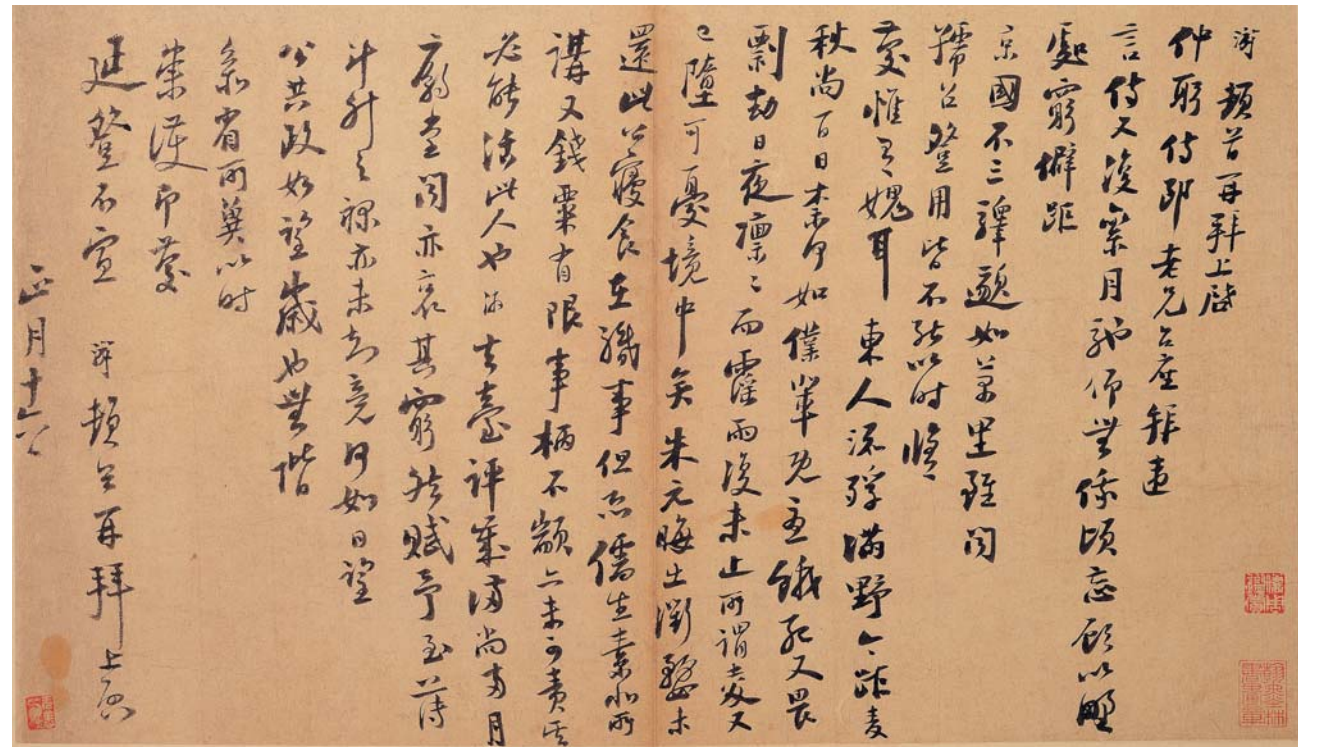 游 頓首再拜上啓
仲躬侍郎老兄台座拜違
言侍又復累月馳仰無俄頃忘顧以野
處窮僻距
京國不三驛邈如萬里雖聞
號召登用皆不能以時脩
慶惟有媿耳東人流殍滿野今距麥
秋尚百日奈何如僕輩既憂餓死又畏
剽劫日夜凜凜而霪雨復未止所謂麥又
已墮可憂境中矣朱元晦出衢婺未
還此公寢食在職事但恐儒生素非所
講又錢粟有限事柄不顓亦未可責其
必能活此人也游去臺評歲滿尚兩月
廟堂聞亦哀其窮然賦予至薄
斗升之祿亦未知竟何如日望
公共政如望歲也無階
參省所冀以時
崇護即慶
延登不宣 游 頓首再拜上啓
正月十六日